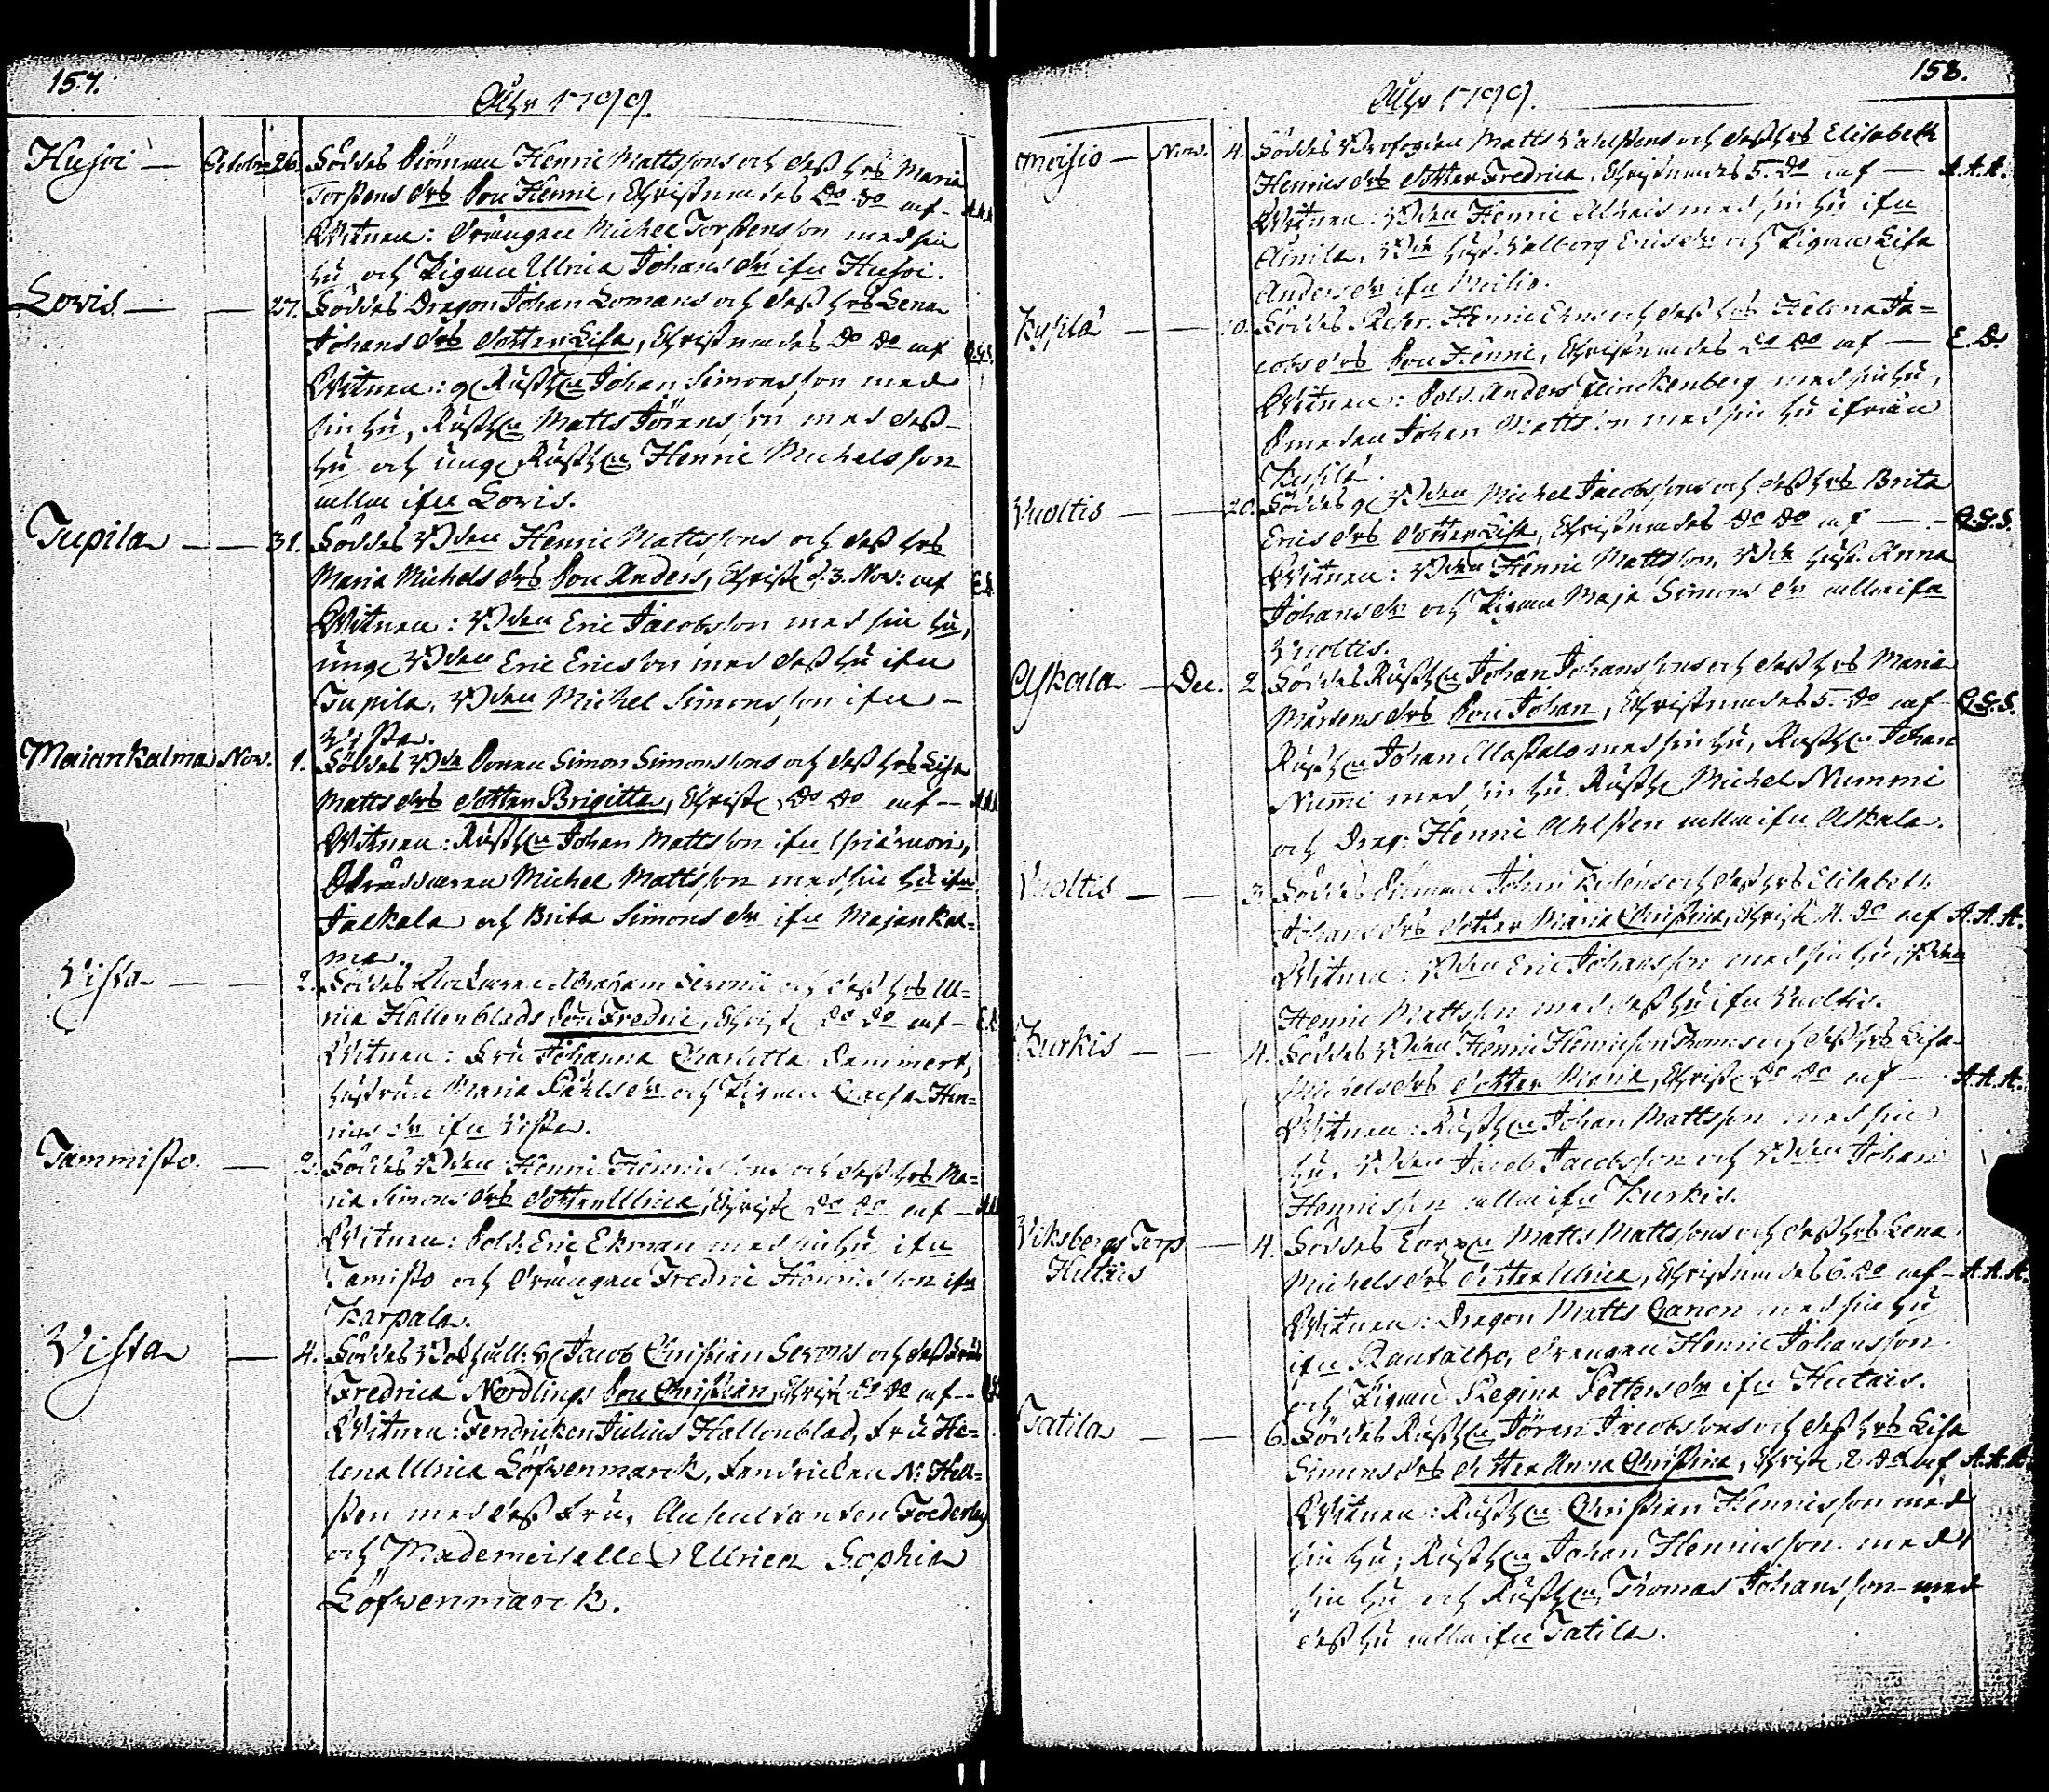 157.
Åhr 1799.
Husoi — October 26. Föddes Henric Mattssons och dess hs Maria
Torstens drs Son Henric, Christnades do do af - A.A.A.
Witnen: drängen Michel Torstensson med sin
hu och Pigan Ulrica Johans dr ifrn Husoi.
Lovis — — 27. Föddes Dragon Johan Lomans och dess hs Lena
Johans drs dotter Lisa, Christnades do do af G.G.S.
Witnen: g Rusth Johan Simonsson med
sin hu, Rusth Matts Jöransson med dess
hu och unge Rusth Henric Michelsson
alla ifrn Lovis.
Tupila — — 31. Föddes Bden Henric Mattssons och dess hs
Maria Michels drs Son Anders, Christ d. 3. Nov: af E.D.
Witnen: Bden Eric Jacobsson med sin hu,
unge Bden Eric Ericsson med dess hu ifrn
Tupila, Bden Michel Simonsson ifrn -
Vista.
Maiankalma Nov. 1. Föddes Bde Sonen Simon Simonssons och dess hs Lisa
Matts drs dotter Brigitta, Christ do do af — A.A.A.
Witnen: Rusth Johan Mattsson ifrn
Michel Mattsson med sin hu ifrn
Jalkala och Brita Simons dr ifrn Majankal=
ma.
Vista — — 2. Föddes Klockaren Abraham Serenii och dess hs Ul=
rica Hallenblads Son Fredric, Christ do do af — E.D.
Witnen: Fru Johanna Charlotta Dammert,
hustrun Maria Påhls dr och Pigan Caisa Hen=
rics dr ifrn Vista.
Tammisto. — 2. Föddes Bden Henric Henricssons och dess hs Ma=
ria Simons drs dotter Ulrica, Christ do do af — A.A.A.
Witnen: Sold. Eric Ekman med sin hu ifrn
Tamisto och drängen Fredric Henricsson ifrn
Karpala.
Vista — 4. Föddes Jacob Christian Serenii och dess Frus
Fredrica Nordlings Son Christian, Christ do do af —
Witnen: Fendricken Julius Hallonblad, Fru He=
lena Ulrica Löfvenmarck, Fendricken N: Hell=
sten med dess Fru, Auscultanten Foederley
och Mademoiselle Ulrica Sophia
Löfvenmarck.
158.
Åhr 1799.
Moisio — Nov. 4. Föddes Matts Vahlstens och dess hs Elisabeth
Henrics drs dotter Fredrica, Christnades 5. do af — A.A.A.
Witnen: Bden Henric med sin hu ifrn
Anila, Bde hust. Valborg Erics dr och Pigan Lisa
Anders dr ifrn Moisio.
Kyhlä — — 10. Föddes Henric Erns och dess hs Helena Ja=
cobs drs Son Henric, Christnades do do af — E.D.
Witnen: Sold. Anders Flinckenberg med sin hu,
Smeden Johan Mattsson med sin hu ifrån
Kyhlä.
Vuoltis — — 20. Föddes g Bden Michel Jacobssons och dess hs Brita
Erics drs dotter Lisa, Christnades do do af — G.G.S.
Witnen: Bden Henric Mattsson, Bde hust. Anna
Johans dr och Pigan Maja Simons dr alla ifrn
Vuoltis.
Askala — Dec. 2. Föddes Rusth Johan Johanssons och dess hs Maria
Mårtens drs Son Johan, Christnades 5. do af - G.G.S.
Rusth Johan Alastalo med sin hu, Rusth Johan
Num̄i med sin hu Rusth Michel Nummi
och Drag: Henric Ahlsten alla ifrn Askala.
Vuoltis — — 3. Föddes Johan och dess hs Elisabeth
Johans drs dotter Maria Christina, Christ 4. do af A.A.A.
Witnen: Bden Eric Johansson med sin hu, Bden
Henric Mattsson med dess hu ifrn Vuoltis.
Kurkis — — 4. Föddes Bden Henric Henricsson Thomas och dess hs Lisa
Michels drs dotter Maria, Christ do do af — A.A.A.
Witnen: Rusth Johan Mattsson med sin
hu, Bden Jacob Jacobsson och Bden Johan
Henricsson alla ifrn Kurkis.
Viksbergs Torp — 4. Föddes Torp Matts Mattssons och dess hs Lena
Hutais Michels drs dotter Ulrica, Christnades 6. do af — A.A.A.
Witnen: Dragon Matts Canon med sin hu
ifrn Rautalho, drengen Henric Johansson
och Pigan Regina Petters dr ifrn Hutais.
Tatila — — 6. Föddes Rusth Jöran Jacobssons och dess hs Lisa
Simons drs dotter Anna Christina, Christ 8 do af A.A.A.
Witnen: Rusth Christian Henricsson med
sin hu, Rusth Johan Henricsson med
sin hu och Rusth Thomas Johansson med
dess hu alla ifrn Tatila.